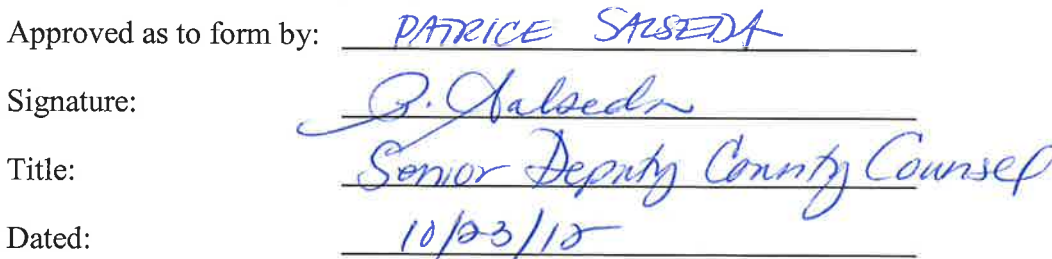 Approved as to form by: PATRICE SALSEDA
Signature: P. Salseda
Title: Senior Deputy County Counsel
Dated: 10/23/12